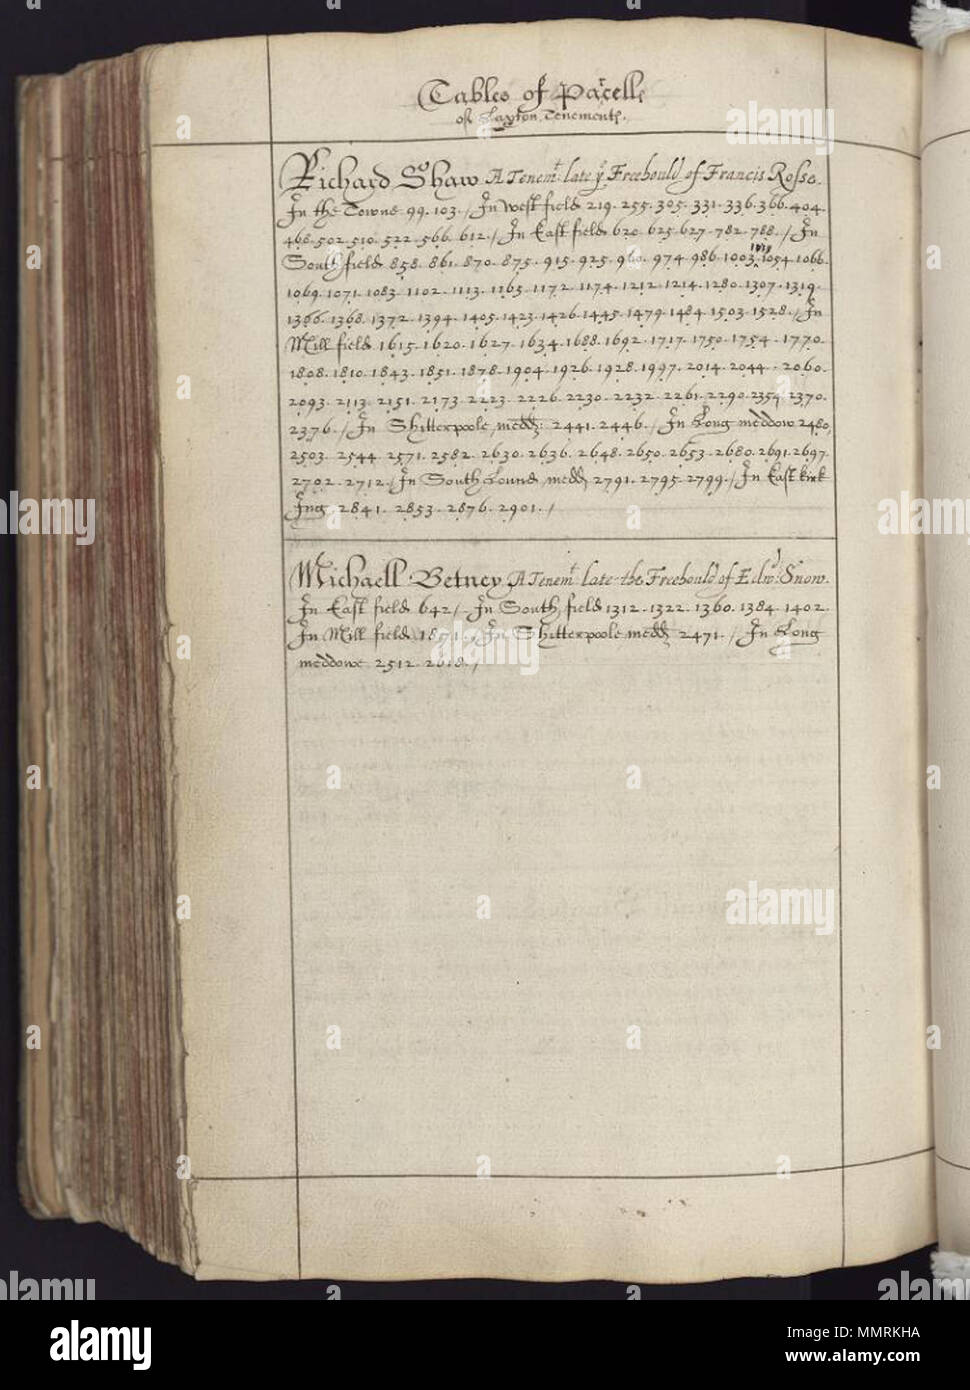 Tables of Pacells
of Laxton Tenements.
Richard Shaw A Tenemt: late ye Freehould of Francis Rosse.
In the Towne 99. 103. / In west field 219. 255. 305. 331. 336. 366. 404.
468. 502. 510. 522. 566. 612. / In East field 620. 625. 627. 782. 788. / In
South field 858. 861. 870. 875. 915. 925. 960. 974. 986. 1003. 1054. 1066.
1069. 1071. 1083. 1102. 1113. 1165. 1172. 1174. 1212. 1214. 1280. 1307. 1319.
1366. 1368. 1372. 1394. 1405. 1423. 1426. 1445. 1479. 1484. 1503. 1528. / In
Mill field 1615. 1620. 1627. 1634. 1688. 1692. 1717. 1750. 1754. 1770.
1808. 1810. 1843. 1851. 1878. 1904. 1926. 1928. 1997. 2014. 2044. 2060.
2093. 2113. 2151. 2173. 2223. 2226. 2230. 2232. 2261. 2290. 2354. 2370.
2376. / In Shitterpoole medd: 2441. 2446. / In Long meddow 2480,
2503. 2544. 2571. 2582. 2630. 2636. 2648. 2650. 2653. 2680. 2691. 2697.
2702. 2712. / In South Lound medd 2791. 2795. 2799. / In East kirk
Ing 2841. 2853. 2876. 2901. /
Michaell Betney A Tenemt: late the Freehould of Edw: Snow.
In East field 642 / In South field 1312. 1322. 1360. 1384. 1402.
In Mill field / In Shitterpoole medd 2471. / In Long
meddowe 2512. /
alamy
Image ID: MMRKHA
www.alamy.com